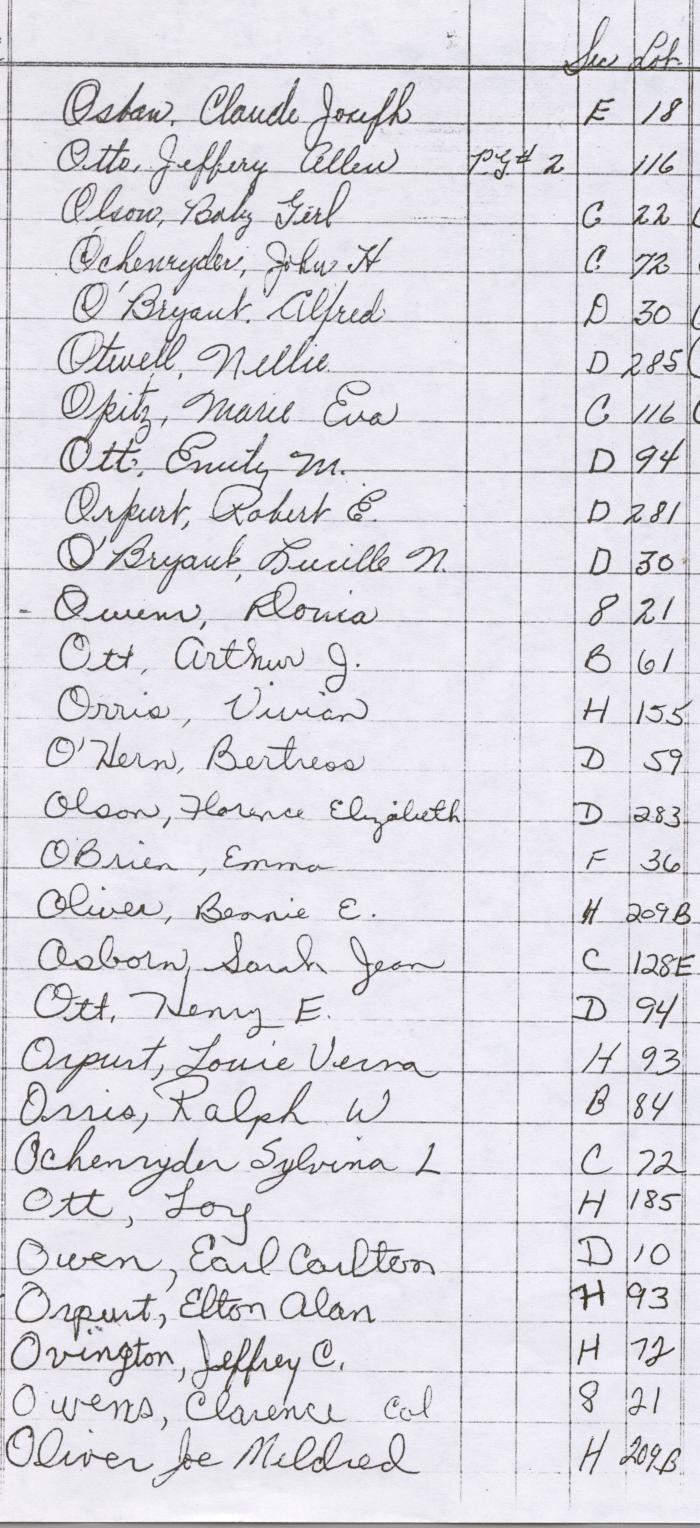 Sec Lot
Osban, Claude Joseph E 18
Otto, Jeffery Allen P.G# 2 116
Olson, Baby Girl C 22
Ochenryder, John H C 72
O'Bryant, Alfred D 30
Otwell, Nellie D 285
Opitz, Marie Eva C 116
Ott, Emily M. D 94
Orpurt, Robert E. D 281
O'Bryant, Lucille N. D 30
Owens, Donia 8 21
Ott, Arthur J. B 61
Orris, Vivian H 155
O'Hern, Bertress D 59
Olson, Florence Elizabeth D 283
OBrien, Emma F 36
Oliver, Bennie E. H 209B
Osborn, Sarah Jean C 128E
Ott, Henry E. D 94
Orpurt, Louie Verna H 93
Orris, Ralph W B 84
Ochenryder Sylvina L C 72
Ott, Loy H 185
Owen, Earl Carlton D 10
Orpurt, Elton Alan H 93
Ovington, Jeffrey C. H 72
Owens, Clarence Col 8 21
Oliver Joe Mildred H 209B